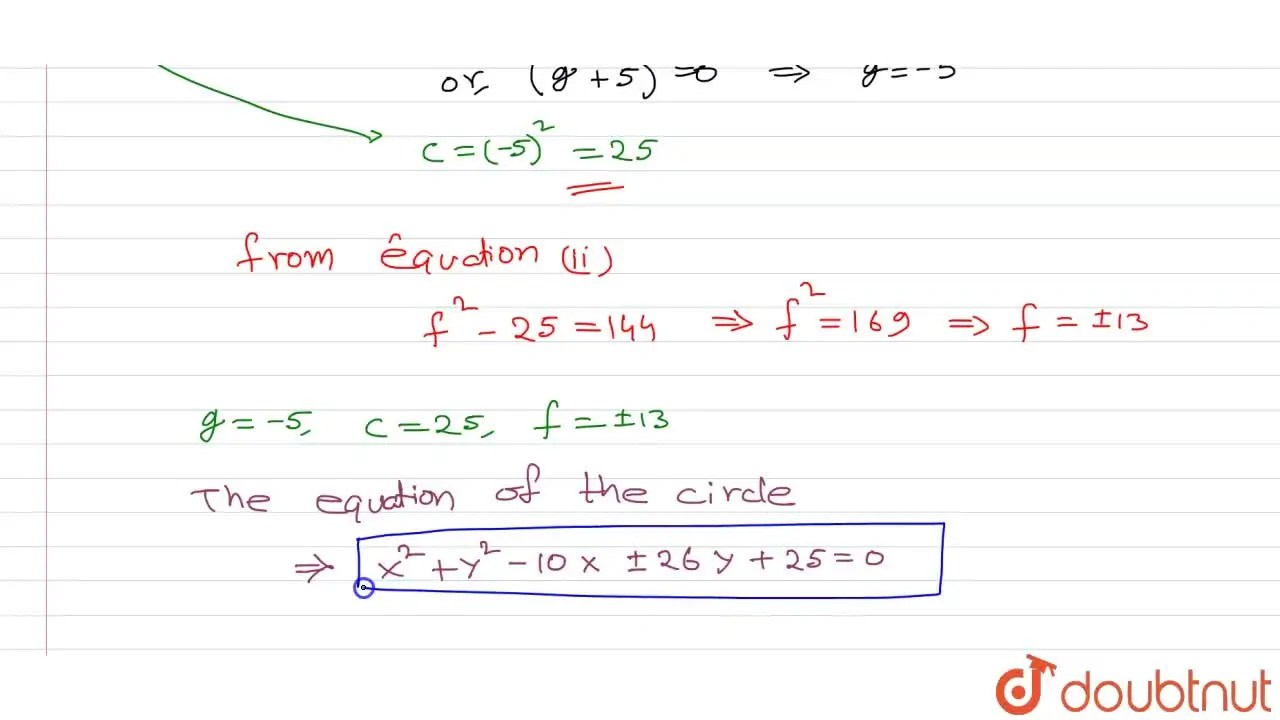 or, (g + 5) = 0 ⇒ g = -5
c = (-5)² = 25
from equation (ii)
f² - 25 = 144 ⇒ f² = 169 ⇒ f = ±13
g = -5, c = 25, f = ±13
The equation of the circle
⇒ x² + y² - 10x ± 26y + 25 = 0
doubtnut